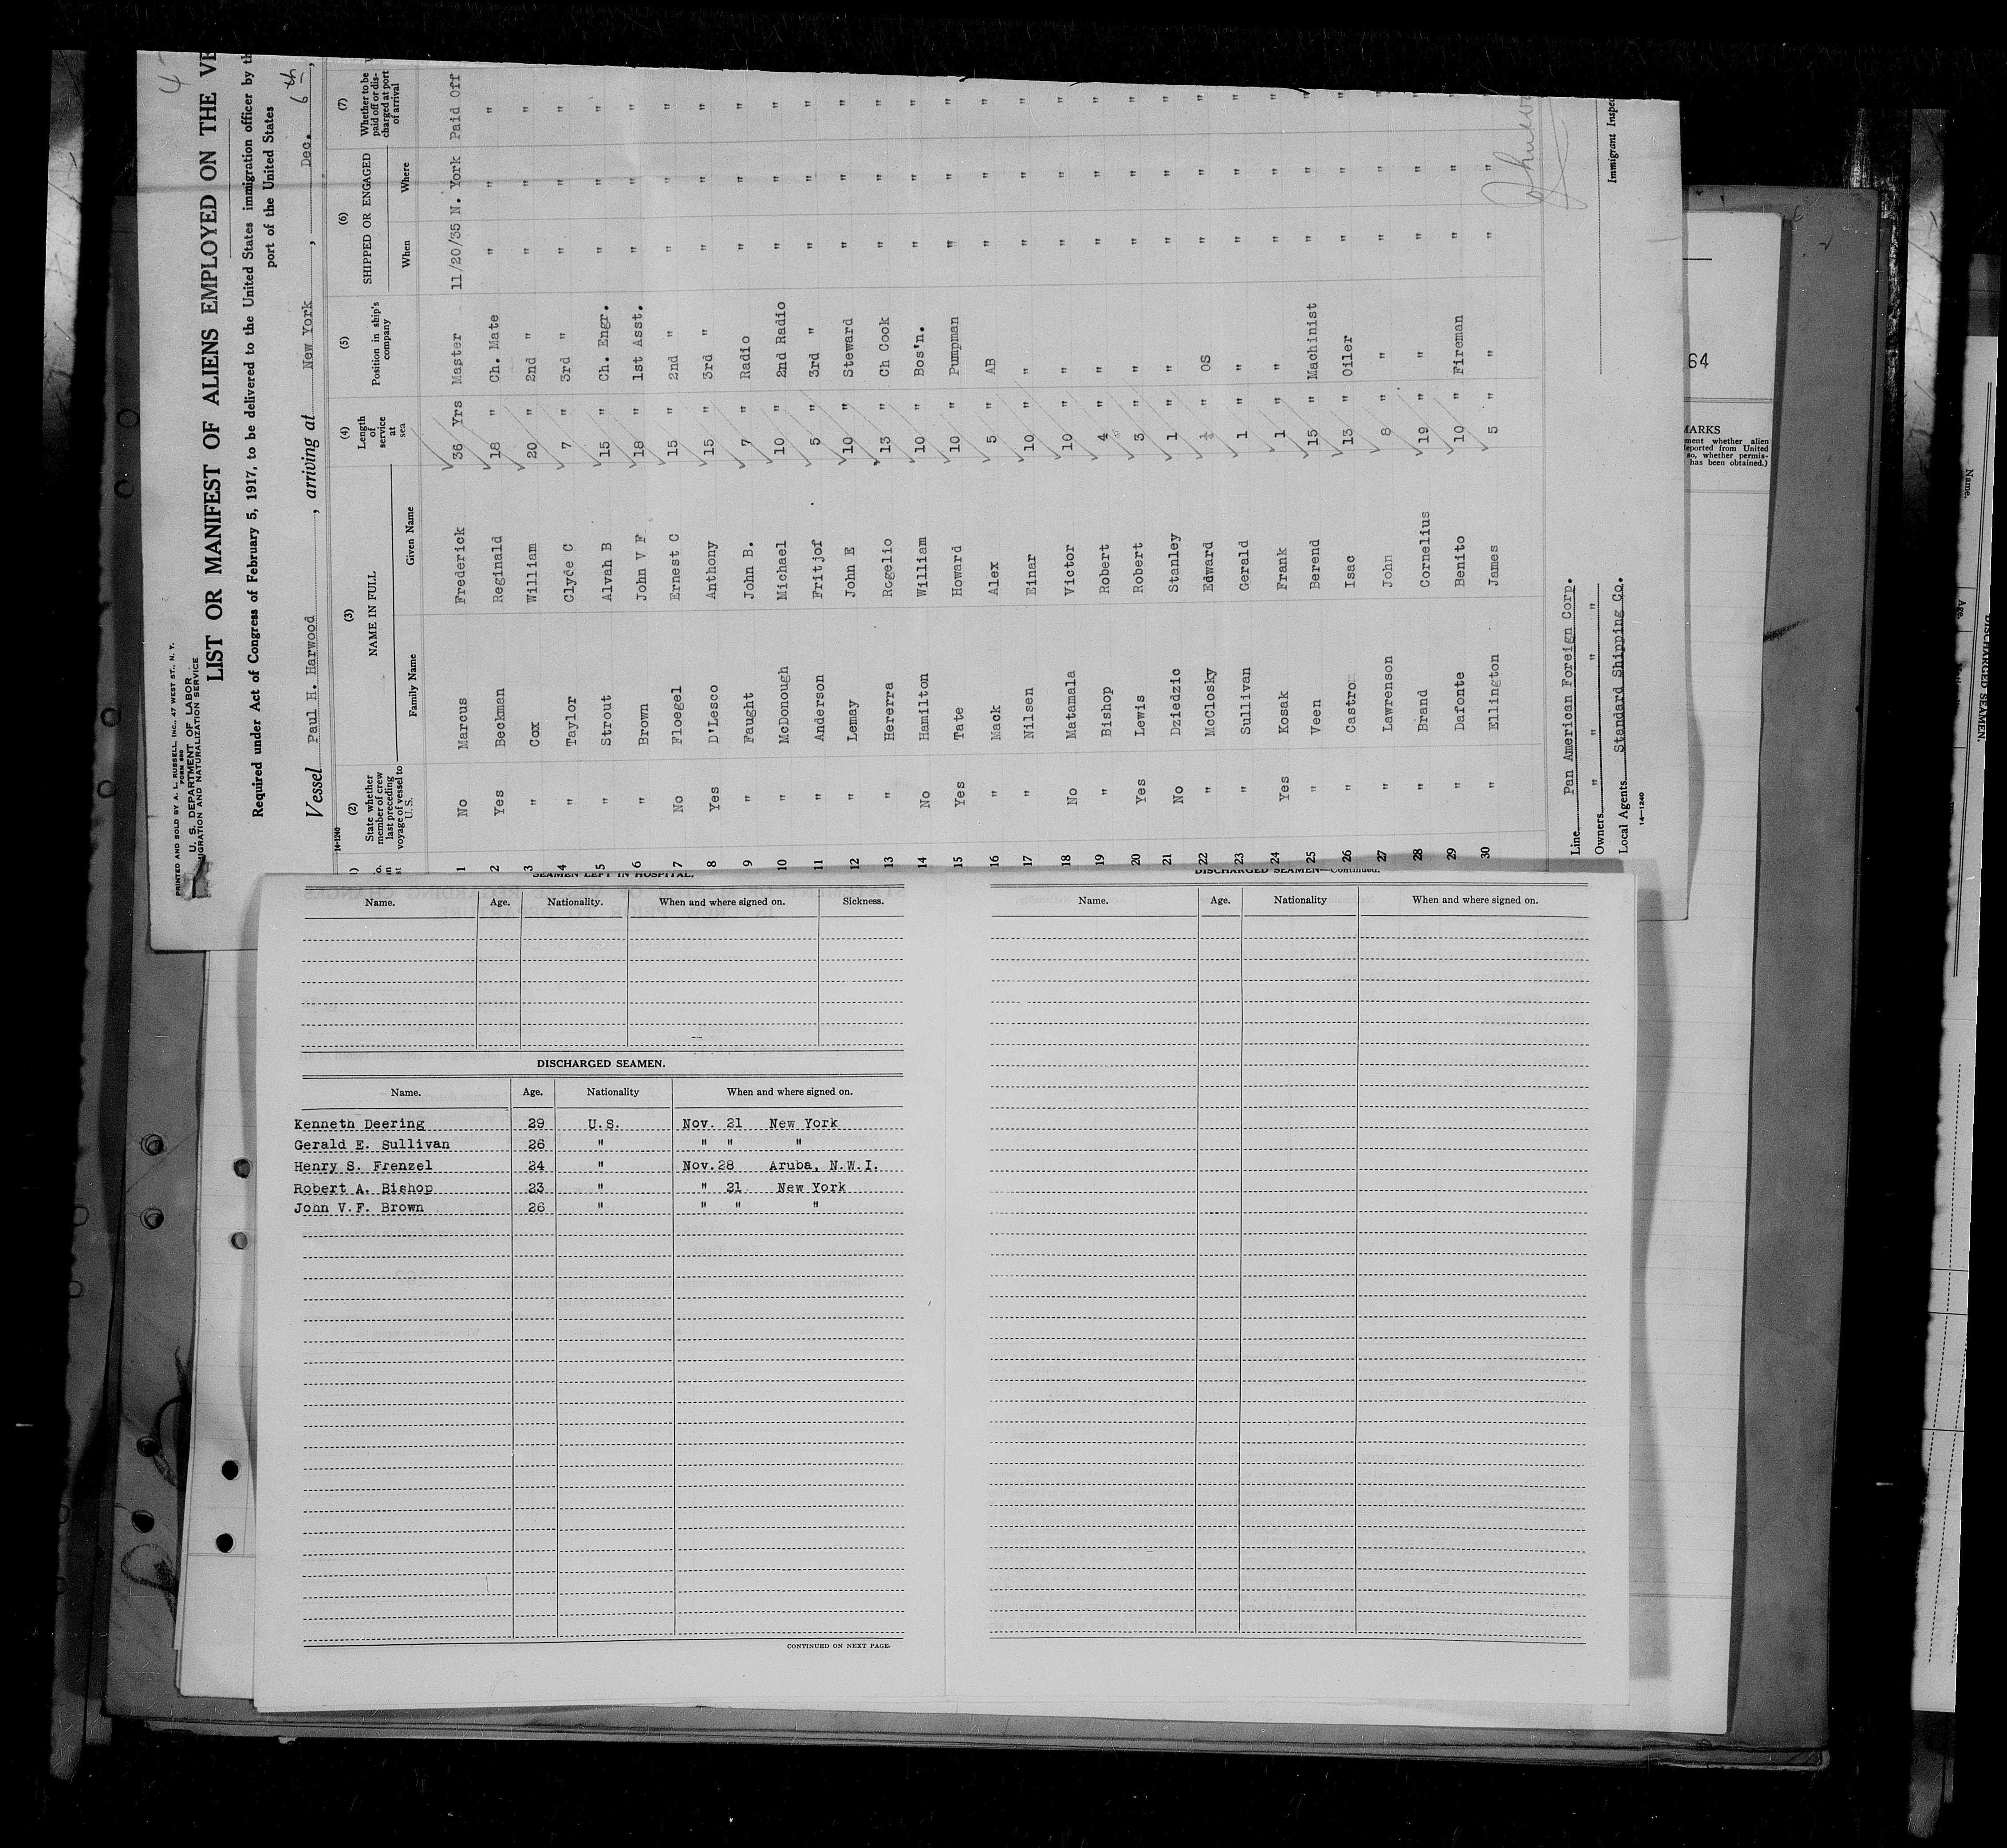 PRINTED AND SOLD BY A. L. RUSSELL, INC., 47 WEST ST., N. Y.
FORM 680
U. S. DEPARTMENT OF LABOR
MIGRATION AND NATURALIZATION SERVICE
LIST OR MANIFEST OF ALIENS EMPLOYED ON THE VE
Required under Act of Congress of February 5, 1917, to be delivered to the United States immigration officer by th
port of the United States
Vessel Paul H. Harwood, arriving at New York, Dec. 6th,
14-1240
(2) (3) (4) (5) (6) (7)
State whether member of crew last preceding voyage of vessel to U. S. NAME IN FULL Length of service at sea Position in ship's company SHIPPED OR ENGAGED Whether to be paid off or discharged at port of arrival
Family Name Given Name When Where
1 No Marcus Frederick 36 Yrs Master 11/20/35 N. York Paid Off
2 Yes Beckman Reginald 18 " Ch. Mate " " "
3 " Cox William 20 " 2nd " " " "
4 " Taylor Clyde C 7 " 3rd " " " "
5 " Strout Alvah B 15 " Ch. Engr. " " "
6 " Brown John V F 18 " 1st Asst. " " "
7 No Floegel Ernest C 15 " 2nd " " " "
8 Yes D'Lesco Anthony 15 " 3rd " " " "
9 " Faught John B. 7 " Radio " " "
10 " McDonough Michael 10 " 2nd Radio " " "
11 " Anderson Fritjof 5 " 3rd " " " "
12 " Lemay John E 10 " Steward " " "
13 " Hererra Rogelio 13 " Ch Cook " " "
14 No Hamilton William 10 " Bos'n. " " "
15 Yes Tate Howard 10 " Pumpman " " "
16 " Mack Alex 5 " AB " " "
17 " Nilsen Einar 10 " " " " "
18 No Matamala Victor 10 " " " " "
19 " Bishop Robert 4 " " " " "
20 Yes Lewis Robert 3 " " " " "
21 No Dziedzic Stanley 1 " " " " "
22 " McClosky Edward ½ " OS " " "
23 " Sullivan Gerald 1 " " " " "
24 Yes Kosak Frank 1 " " " " "
25 " Veen Berend 15 " Machinist " " "
26 " Castro Isac 13 " Oiler " " "
27 " Lawrenson John 8 " " " " "
28 " Brand Cornelius 19 " " " " "
29 " Dafonte Benito 10 " Fireman " " "
30 " Ellington James 5 " " " "
Line Pan American Foreign Corp.
Owners " " " "
Local Agents Standard Shipping Co.
14-1240
Immigrant Inspec
64
MARKS
ment whether alien
deported from United
so, whether permis-
has been obtained.)
SEAMEN LEFT IN HOSPITAL.
Name. Age. Nationality. When and where signed on. Sickness.
DISCHARGED SEAMEN.
Name. Age. Nationality When and where signed on.
Kenneth Deering 29 U.S. Nov. 21 New York
Gerald E. Sullivan 26 " " " "
Henry S. Frenzel 24 " Nov.28 Aruba, N.W.I.
Robert A. Bishop 23 " " 21 New York
John V.F. Brown 26 " " " "
CONTINUED ON NEXT PAGE.
DISCHARGED SEAMEN—Continued.
Name. Age. Nationality When and where signed on.
DISCHARGED SEAMEN.
Name. Age.